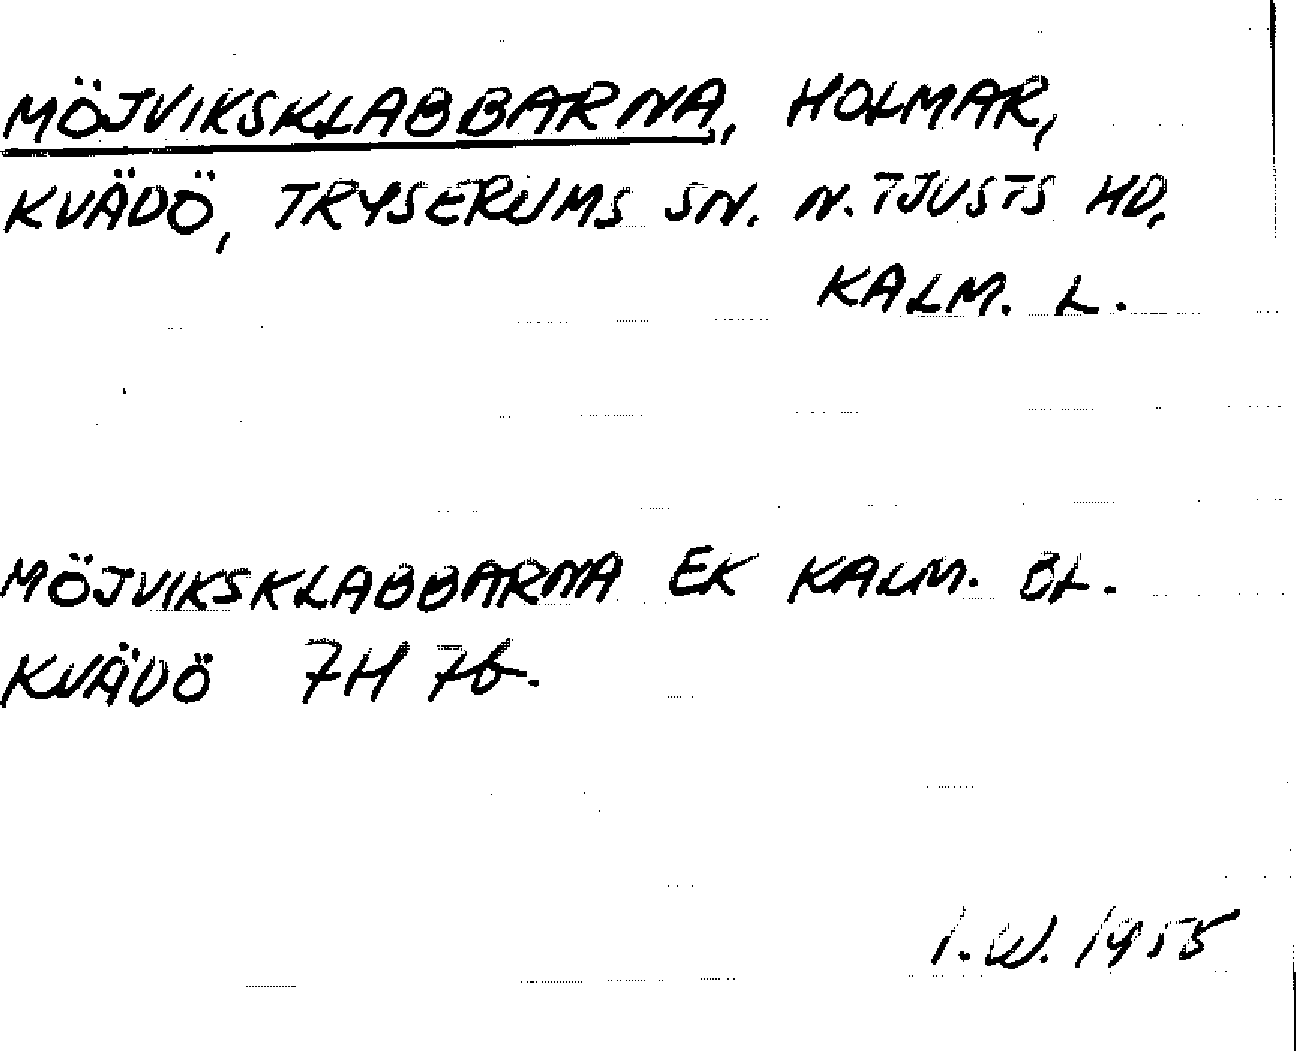 MÖJVIKSKLABBARNA, HOLMAR,
KVÄDÖ, TRYSERUMS SN. N. TJUSTS HD.
KALM. L.
MÖJVIKSKLABBARNA EK KALM. BL.
KVÄDÖ 7H 7b.
I. W. 1955